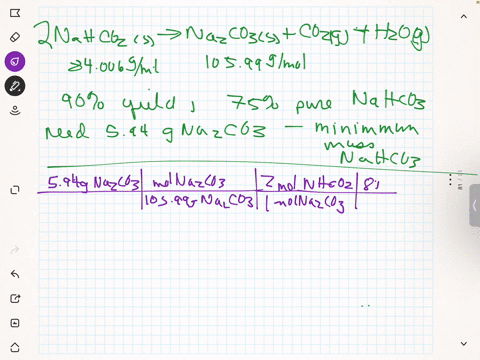 2NaHCO2(s) → Na2CO3(s) + CO2(g) + H2O(g)
84.006g/ml 105.99g/mol
90% yield, 75% pure NaHCO3
need 5.94 g Na2CO3 — minimmun
mass
NaHCO3
5.94g Na2CO3 | mol Na2CO3 | 2 mol NHCO2 | 8
105.99g Na2CO3 | 1 mol Na2CO3